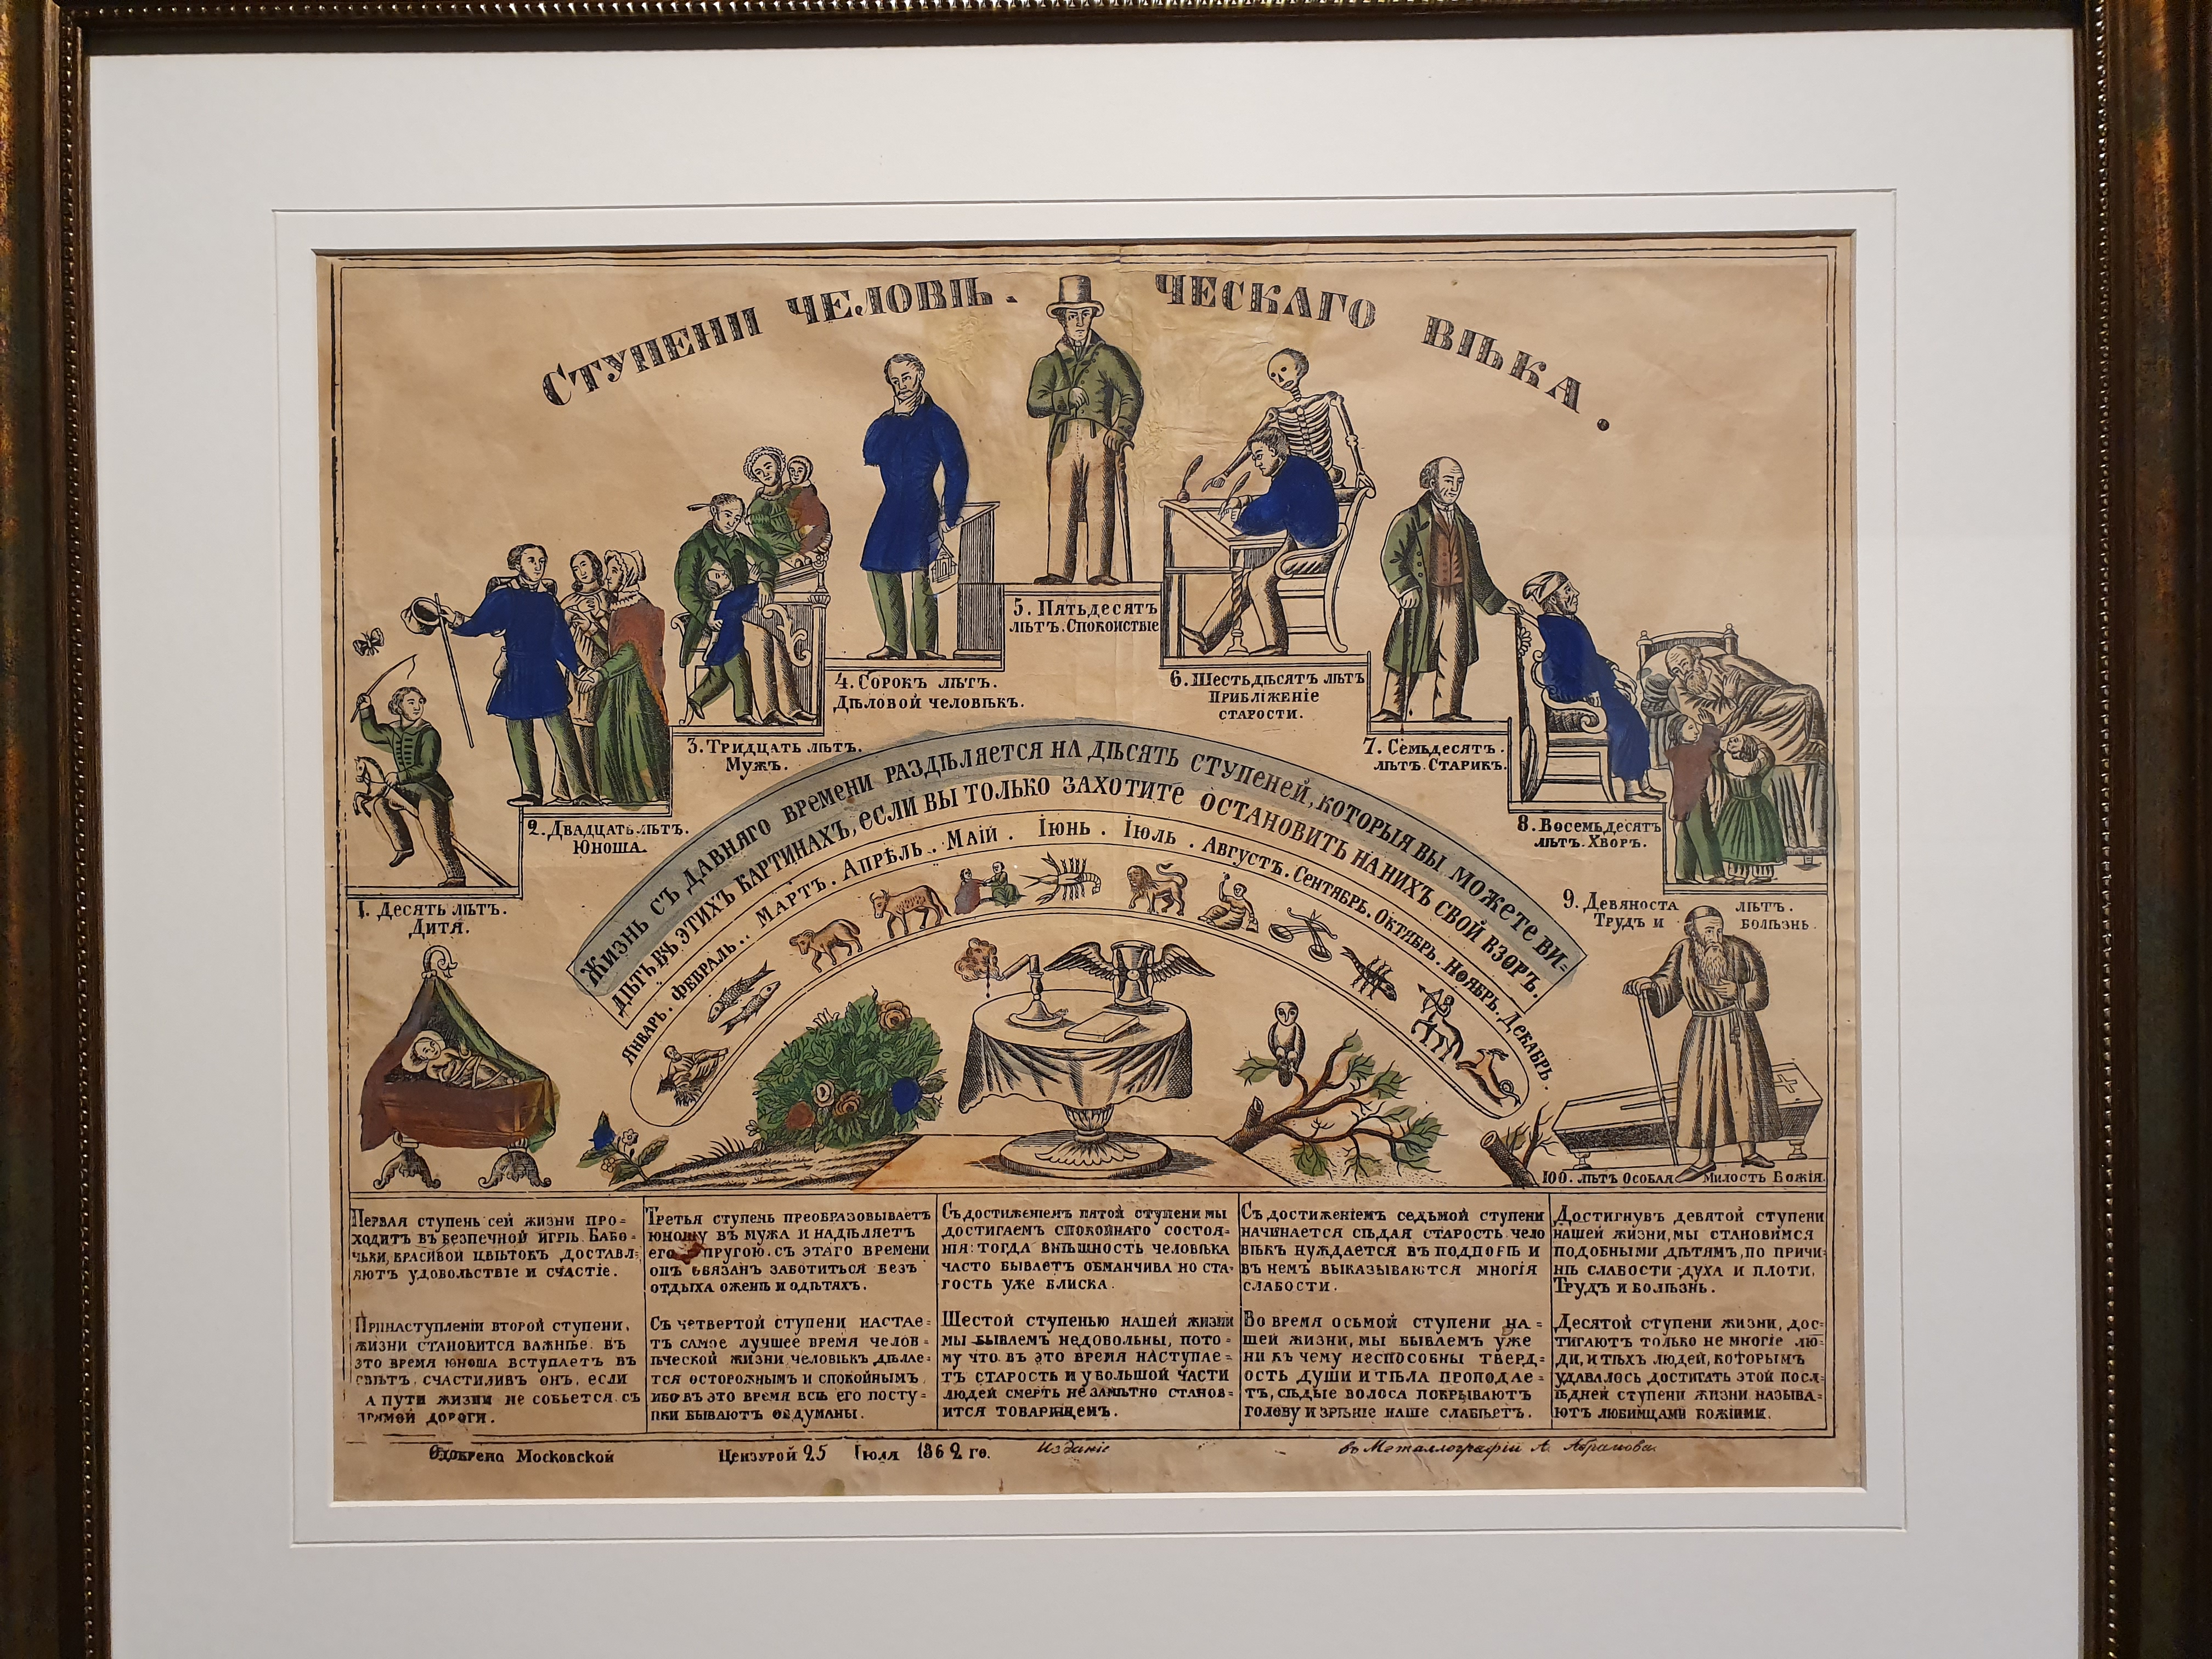 Ступени человѣ- ческаго вѣка.
1. Десять лѣтъ.
Дитя.
2. Двадцать лѣтъ.
Юноша.
3. Тридцать лѣтъ.
Мужъ.
4. Сорокъ лѣтъ.
Дѣловой человѣкъ.
5. Пятьдесятъ
лѣтъ. Спокоиствіе
6. Шестьдѣсятъ лѣтъ
Приблѣженіе
старости.
7. Семьдесятъ.
лѣтъ. Старикъ.
8. Восемьдесятъ
лѣтъ. Хворъ.
9. Девяноста лѣтъ.
Трудъ и болѣзнь.
100. лѣтъ Особая Милость Божія.
Жизнь съ давняго времени раздѣляется на дѣсять ступеней, которыя вы можете ви=
дѣть въ этихъ картинахъ, если вы только захотите остановить на нихъ свой взоръ.
Январь. Февраль.. Мартъ. Апрѣль.. Маій. Іюнь. Іюль. Августъ. Сентябрь. Октябрь. Ноябрь. Декабрь.
Первая ступень сей жизни про=
ходитъ въ безпечной игрѣ. Бабо=
чьки, красивой цвѣтокъ доставл=
яютъ удовольствіе и счастіе.
Принаступленіи второй ступени,
жизни становится важнѣе. въ
это время юноша вступаетъ въ
свѣтъ, счастливъ онъ, если
а пути жизни не собьется съ
прямой дороги.
Третья ступень преобразовываетъ
юношу въ мужа и надѣляетъ
его пругою. съ этаго времени
онъ обязанъ заботиться безъ
отдыха оженѣ и одѣтяхъ.
Съ четвертой ступени настае=
тъ самое лучшее время челов=
ѣческой жизни человѣкъ дѣлае=
тся осторожнымъ и спокойнымъ,
ибо въ это время всѣ его посту=
пки бываютъ обдуманы.
Съ достиженіемъ пятой ступени мы
достигаемъ спокойнаго состоя=
нія: тогда внѣшность человѣка
часто бываетъ обманчива но ста=
гость уже блиска.
Шестой ступенью нашей жизни
мы бываемъ недовольны, пото=
му что въ это время наступае=
тъ старость и убольшой части
людей смерть незамѣтно станов=
ится товарищемъ.
Съ достиженіемъ седьмой ступени
начинается сѣдая старость чело
вѣкъ нуждается въ подпорѣ и
въ немъ выказываются многія
слабости.
Во время осьмой ступени на=
шей жизни, мы бываемъ уже
ни къ чему неспособны тверд=
ость души и тѣла проподае=
тъ, сѣдые волоса покрываютъ
голову и зрѣніе наше слабѣетъ.
Достигнувъ девятой ступени
нашей жизни, мы становимся
подобными дѣтямъ, по причи=
нѣ слабости духа и плоти.
Трудъ и болѣзнь.
Десятой ступени жизни, дос=
тигаютъ только не многіе лю=
ди, и тѣхъ людей, которымъ
удавалось достигать этой посл=
ѣдней ступени жизни называ=
ютъ любимцами божіими.
Одобрено Московской Цензурой 25 Іюля 1862 го. Изданіе въ Металлографіи А. Абрамова.